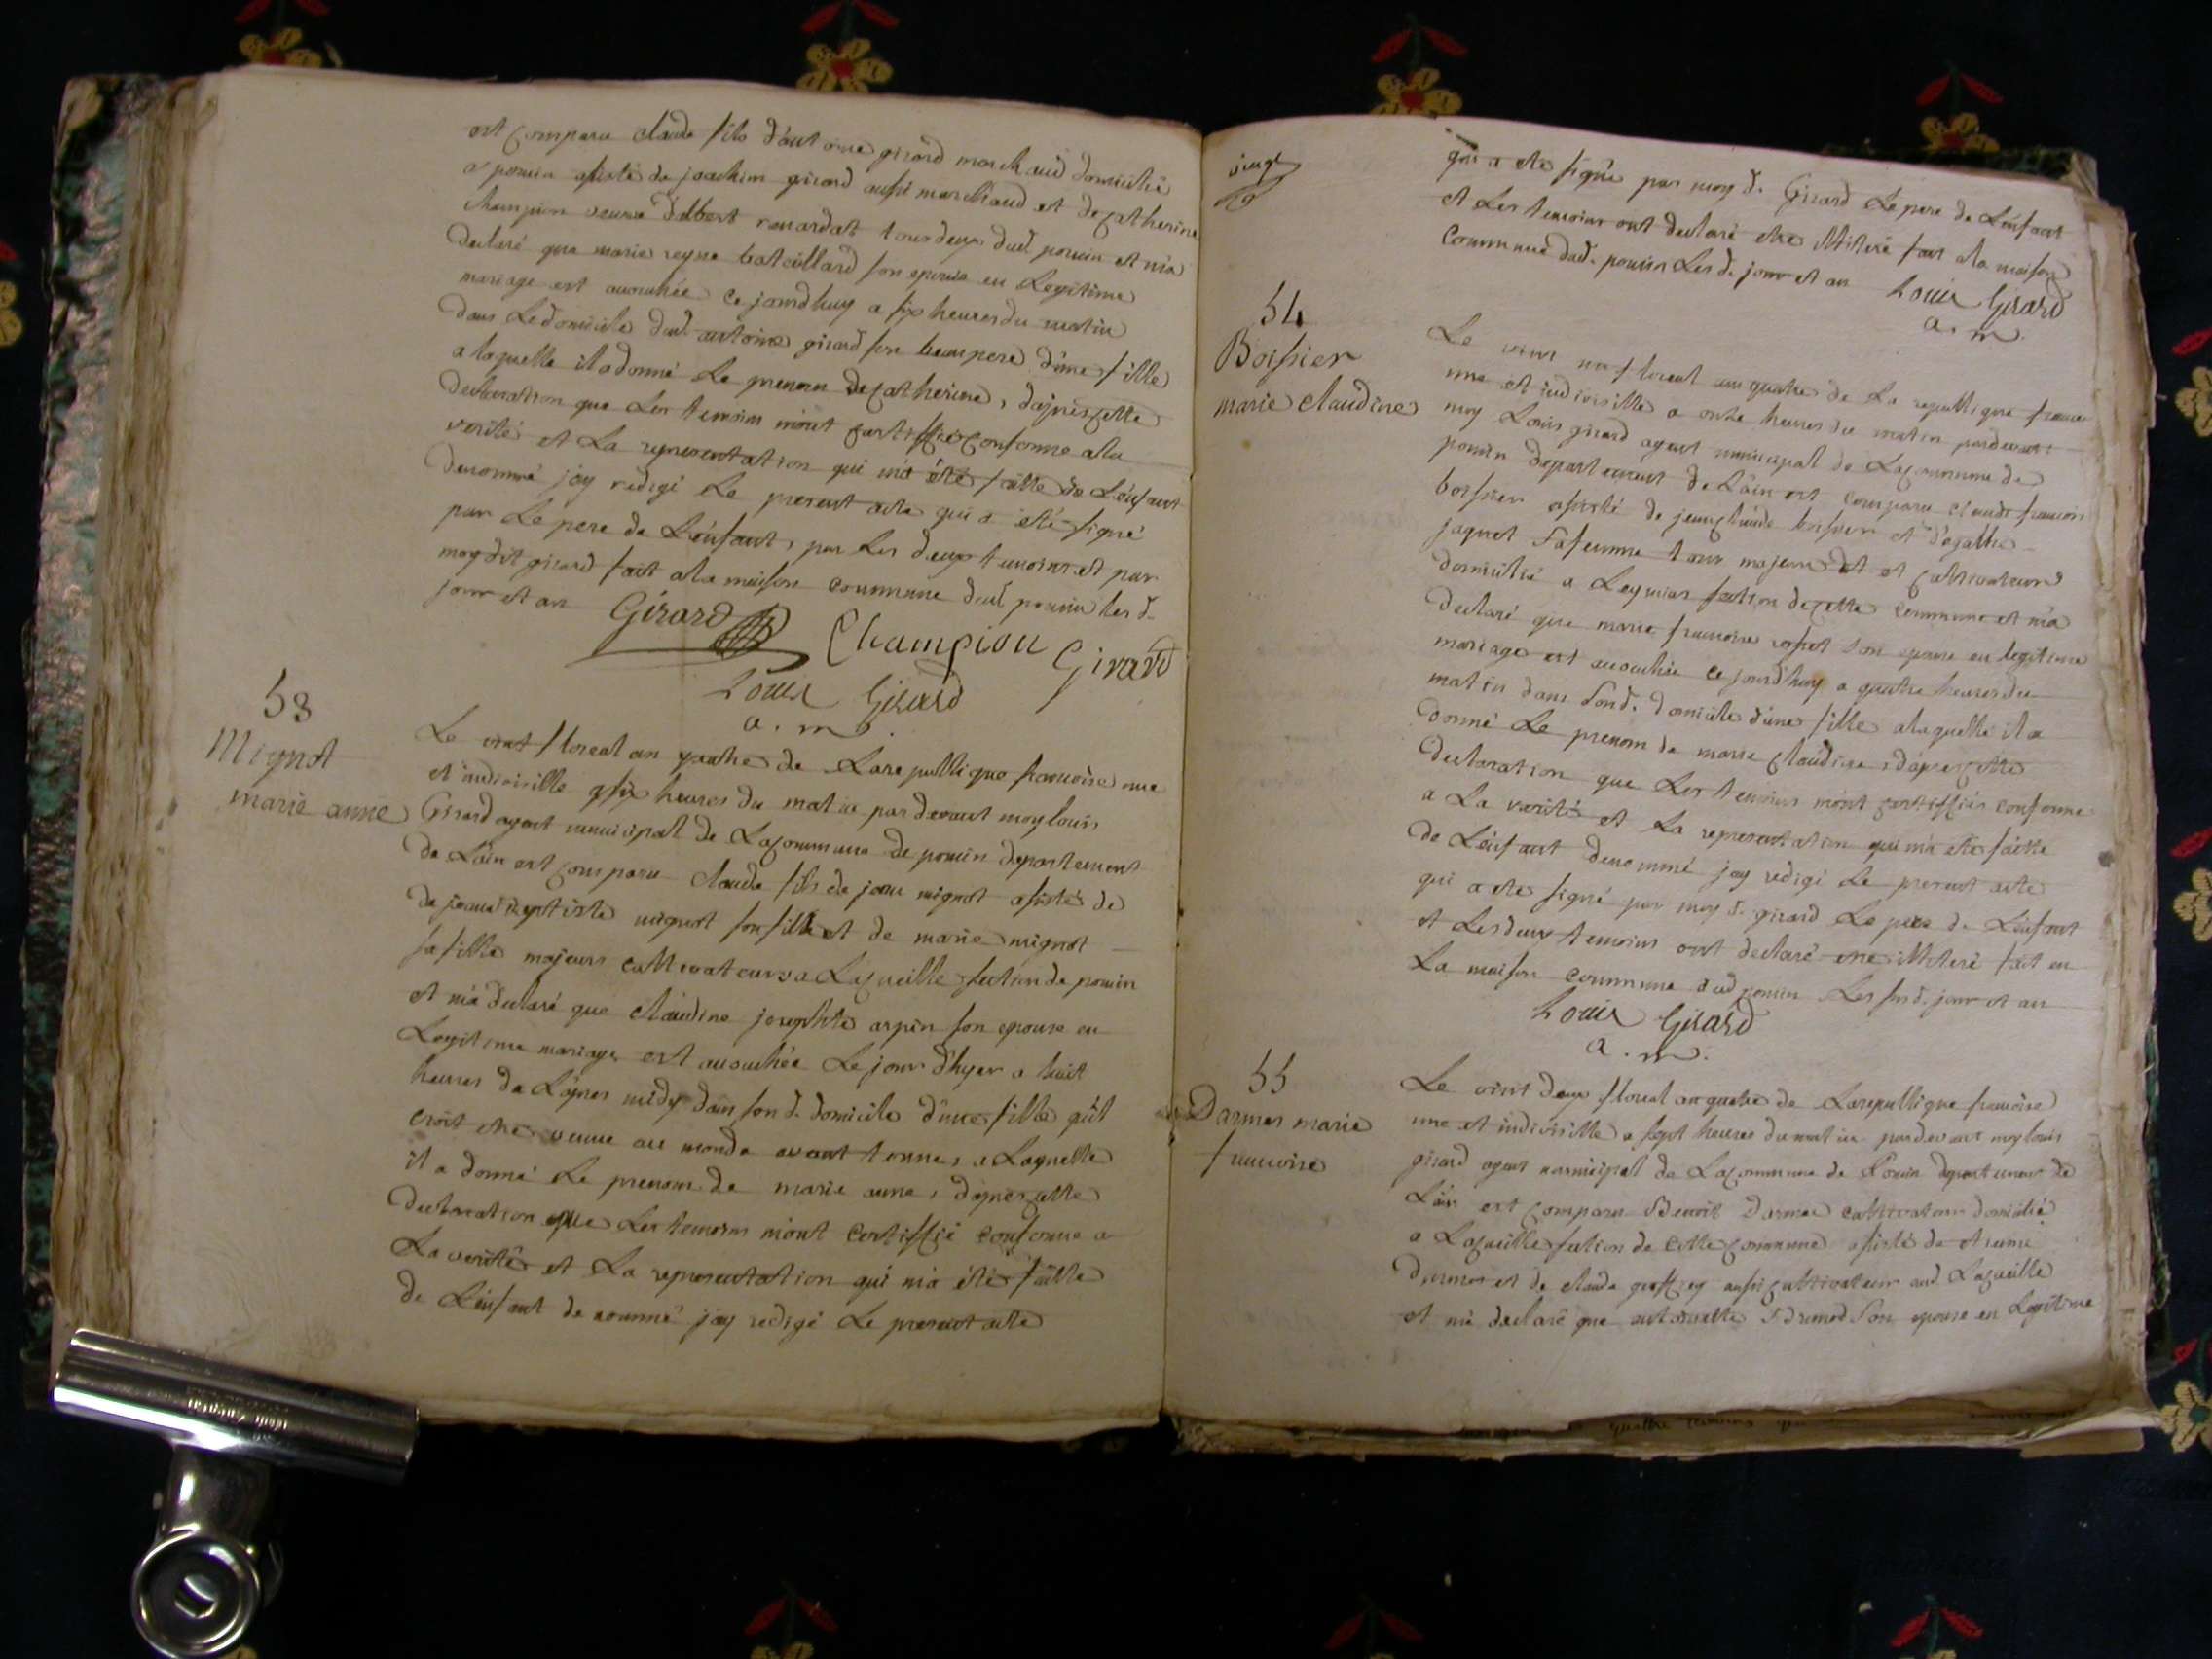 est comparu claude fils d'antoine girard marchand domicilié
a poncin assisté de joachim girard aussi marchand et de catherine
champion veuve d'albert ravardat tous deux dud. poncin et m'a
declaré que marie reyne bateillard son epouse en Legitime
mariage est accouchée ce jourd'huy a six heures du matin
dans Le domicile dud. antoine girard son beaupere d'une fille
a laquelle il a donné Le prenom de catherine, d'après cette
declaration que Les temoins m'ont certiffié conforme a la
verité et La representation qui m'a été faitte de L'enfant
denommé j'ay redigé Le present acte qui a été signé
par Le pere de L'enfant, par Les deux temoins et par
moy dit girard fait a la maison commune dud. poncin les d.
jour et an Girard Champion Girard
Louis Girard
a. m.
53
Mignot
marie anne
Le vint floreal an quatre de La republique francoise une
et indivisille a six heures du matin par devant moy louis
Girard agent municipal de La commune de poncin departement
de L'ain est comparu claude fils de jean mignot assisté de
de jean baptiste mignot son fils et de marie mignot
sa fille majeurs cultivateurs a Lacueille section de poncin
et m'a declaré que claudine josephte arpin son epouse en
Legitime mariage est accouchée Le jour d'hyer a huit
heures de L'apres midy dans son d. domicile d'une fille qu'il
croit etre venue au monde avant terme, a Laquelle
il a donné Le prenom de marie anne, d'après cette
declaration que Les temoins m'ont certiffié conforme a
La verité et La representation qui m'a été faitte
de L'enfant de nommé j'ay redigé Le present acte
vingt
qui a été signé par moy d. Girard Le pere de L'enfant
et Les temoins ont declaré etre illiteré fait a la maison
Commune dud. poncin Les d. jour et an Louis Girard
a. m.
54
Boissier
marie claudine
Le vint floreal an quatre de La republique francoise
une et indivisille a onze heures du matin pardevant
moy Louis girard agent municipal de La commune de
poncin departement de L'ain est comparu claude francois
boissier assisté de jean claude boissier et d'agathe
jaquet sa femme tous majeurs et cultivateurs
domicilié a Leymiat section de cette commune et m'a
declaré que marie francoise son epouse en legitime
mariage est accouchée ce jourd'huy a quatre heures du
matin dans son d. domicile d'une fille a laquelle il a
donné Le prenom de marie claudine, d'après cette
declaration que Les temoins m'ont certiffiés conforme
a La verité et La representation qui m'a été faitte
de L'enfant denommé j'ay redigé Le present acte
qui a été signé par moy d. girard Le pere de L'enfant
et Les deux temoins ont declaré etre illiteré fait en
La maison commune dud poncin Les sus d. jour et an
Louis Girard
a. m.
55
Darmes marie
francoise
Le vint deux floreal an quatre de La republique francoise
une et indivisille a sept heures du matin pardevant moy louis
girard agent municipal de La commune de Poncin departement de
L'ain est comparu Benoit Darmes cultivateur domicilié
a Lacueille section de cette commune assisté de
Darmes et de claude aussi cultivateur aud. Lacueille
et m'a declaré que antoinette son epouse en Legitime